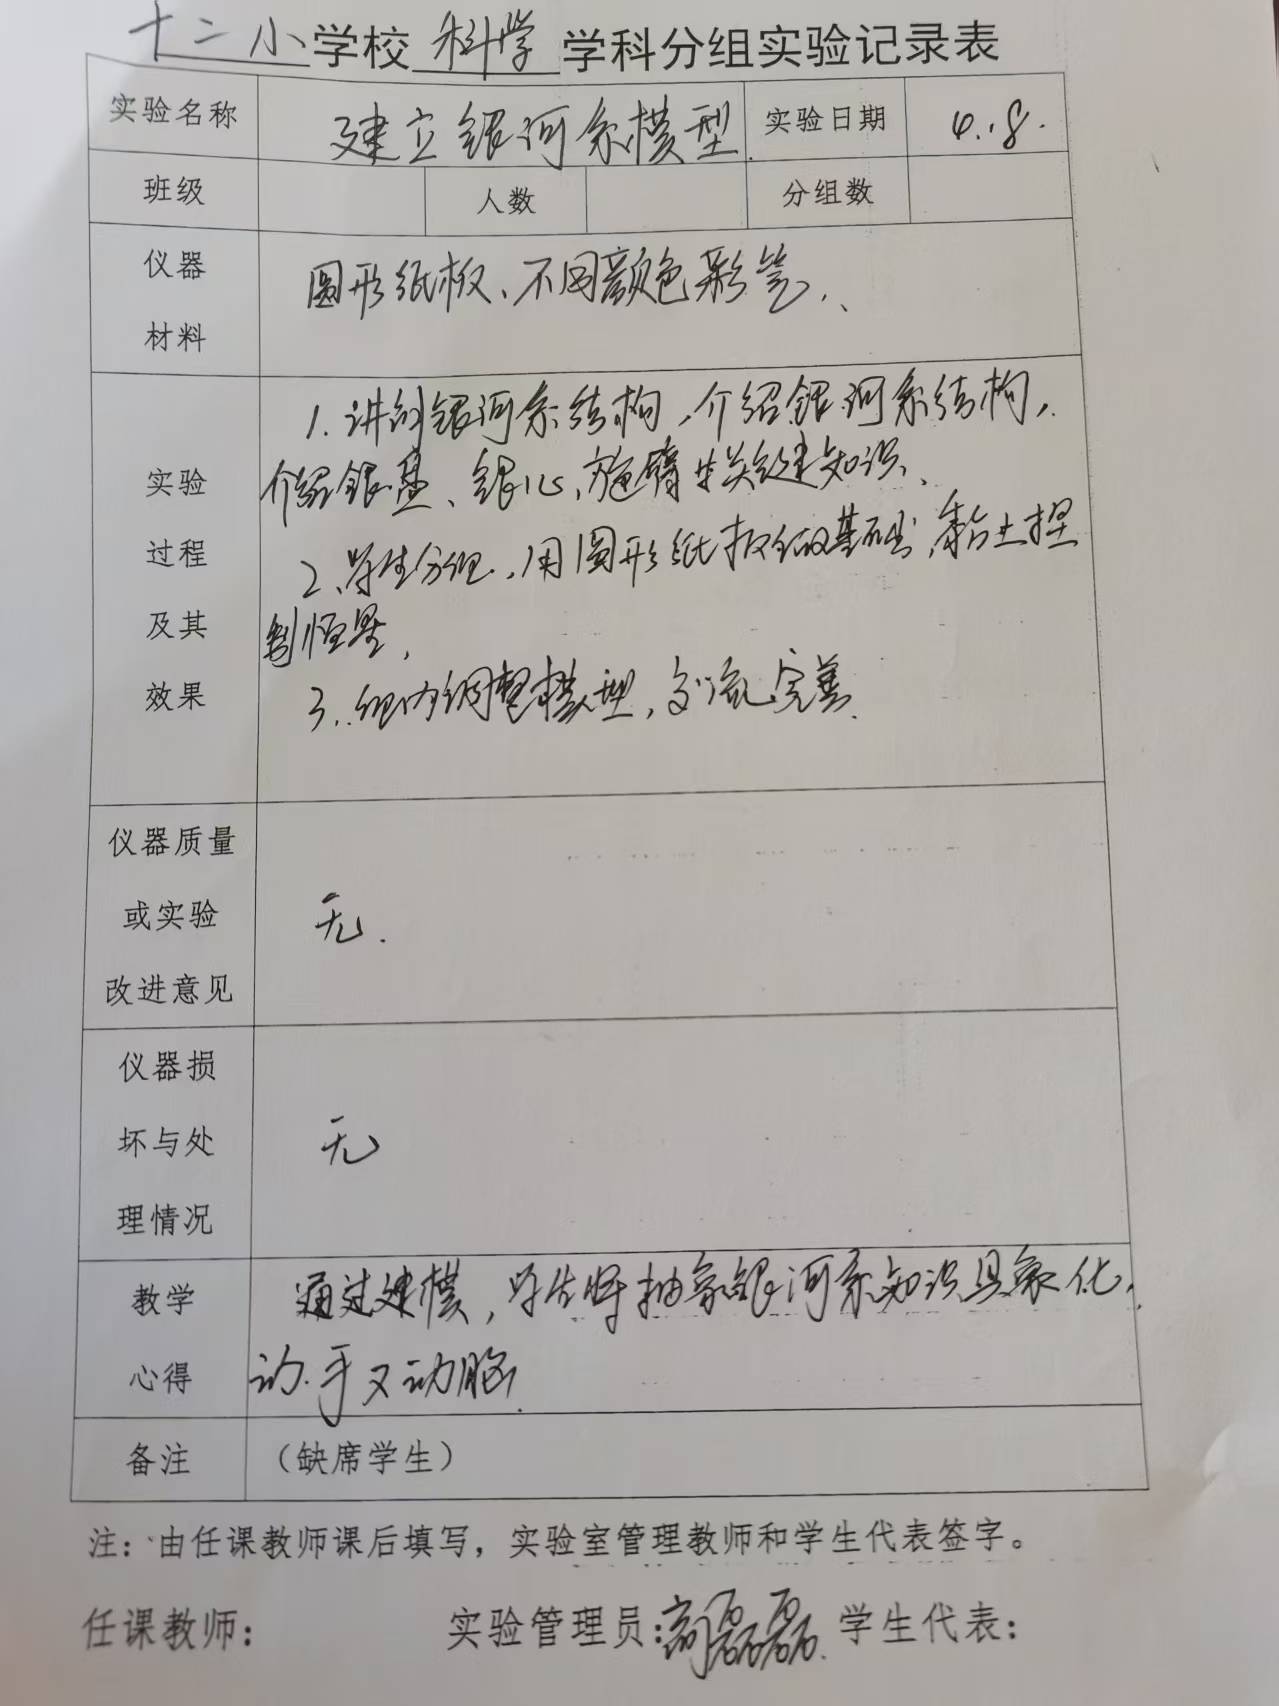 十二小学校 科学 学科分组实验记录表
实验名称 建立银河系模型. 实验日期 4.8.
班级 人数 分组数
仪器材料 圆形纸板、不同颜色彩笔.、
实验过程及其效果
1. 讲解银河系结构,介绍银河系结构,
介绍银盘、银心、旋臂等关键知识、
2、学生分组,用圆形纸板做基础,黏土捏
制恒星,
3、组内调整模型,交流完善.
仪器质量或实验改进意见 无.
仪器损坏与处理情况 无
教学心得
通过建模,学生将抽象银河系知识具象化,
动手又动脑.
备注 (缺席学生)
注:由任课教师课后填写,实验室管理教师和学生代表签字。
任课教师: 实验管理员:高磊磊. 学生代表: